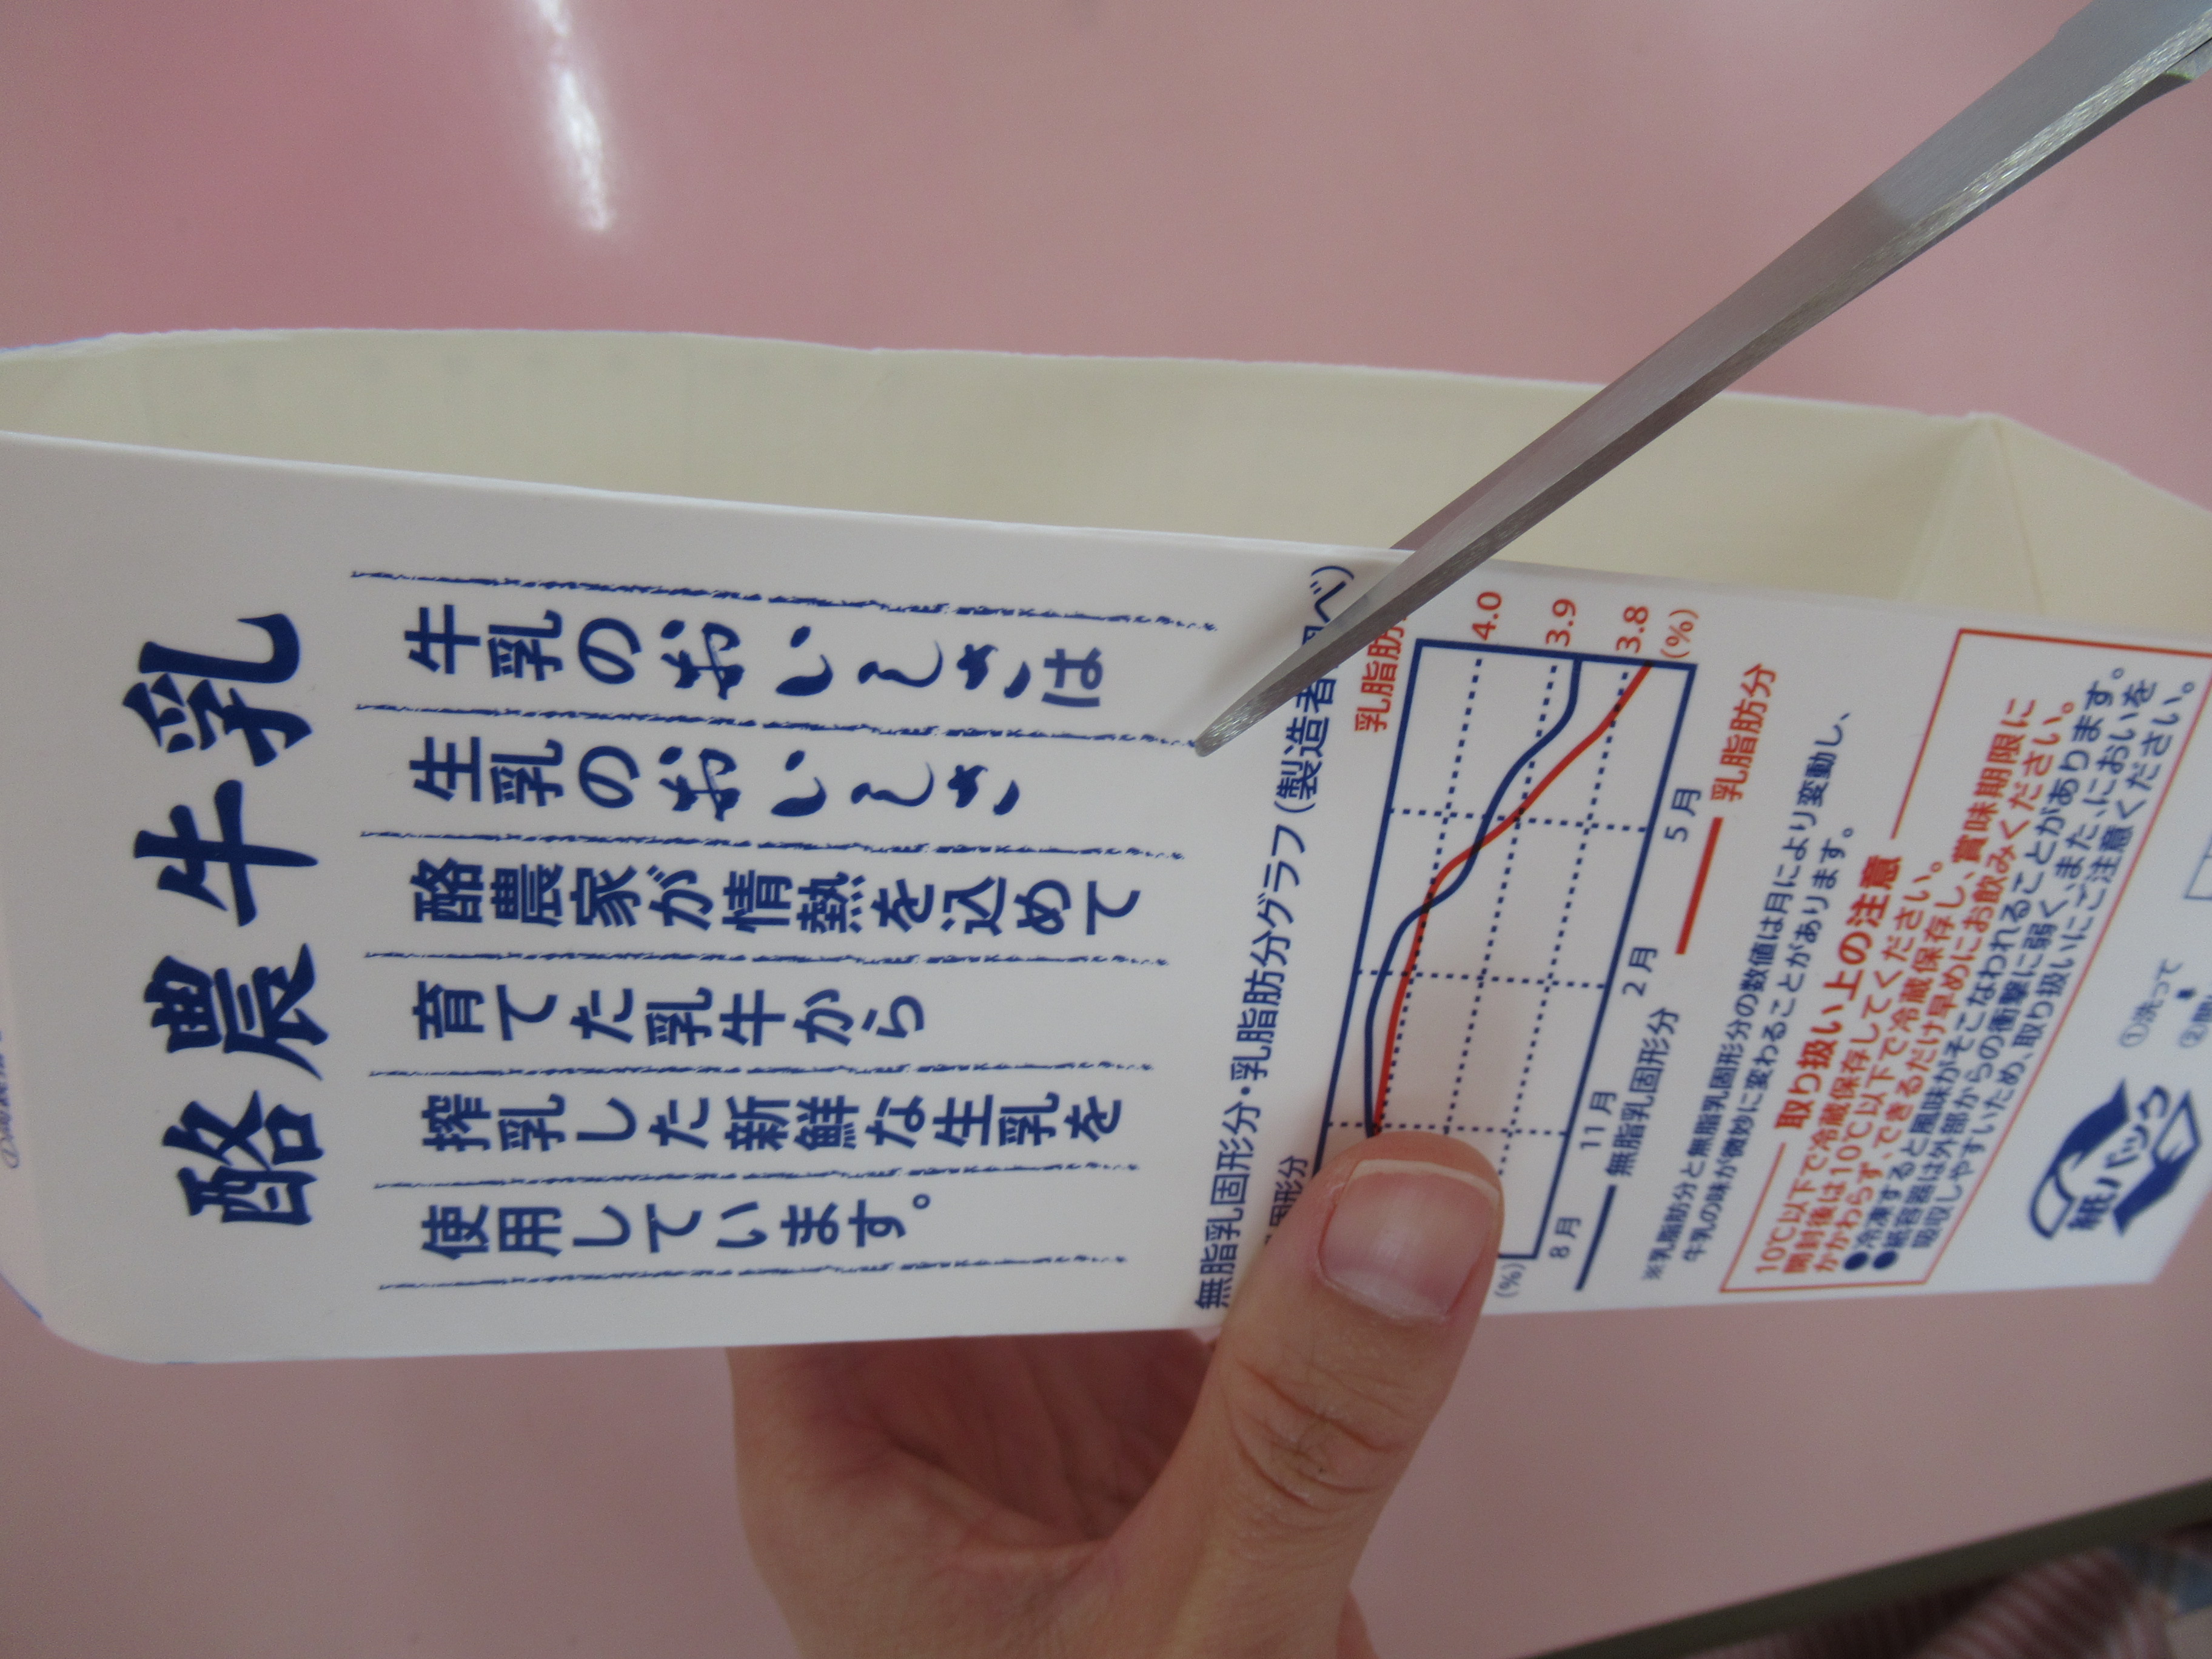 酪農牛乳
牛乳のおいしさは
生乳のおいしさ
酪農家が情熱を込めて
育てた乳牛から
搾乳した新鮮な生乳を
使用しています。
無脂乳固形分・乳脂肪分グラフ(製造者調べ)
固形分
乳脂肪
4.0
3.9
3.8
(%)
(%)
8月
11月
2月
5月
無脂乳固形分
乳脂肪分
※乳脂肪分と無脂乳固形分の数値は月により変動し、
牛乳の味が微妙に変わることがあります。
取り扱い上の注意
10℃以下で冷蔵保存してください。
開封後は10℃以下で冷蔵保存し、賞味期限に
かかわらず、できるだけ早めにお飲みください。
●冷凍すると風味がそこなわれることがあります。
●紙容器は外部からの衝撃に弱く、また、においを
吸収しやすいため、取り扱いにご注意ください。
紙パック
①洗って